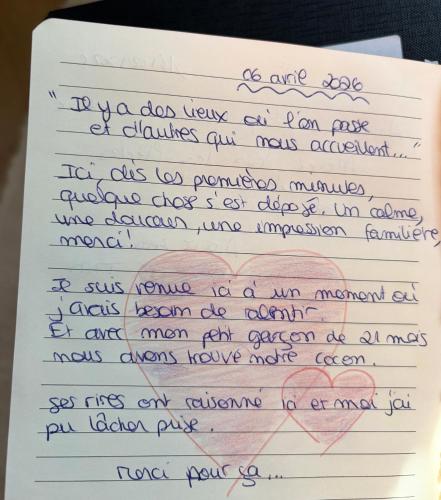 06 avril 2026
"Il y a des lieux où l'on passe
et d'autres qui nous accueillent..."
Ici, dès les premières minutes,
quelque chose s'est déposé. Un calme,
une douceur, une impression familière,
merci!
Je suis venue ici à un moment où
j'avais besoin de ralentir.
Et avec mon petit garçon de 21 mois
nous avons trouvé notre cocon.
ses rires ont raisonné ici et moi j'ai
pu lâcher prise.
Merci pour ça...